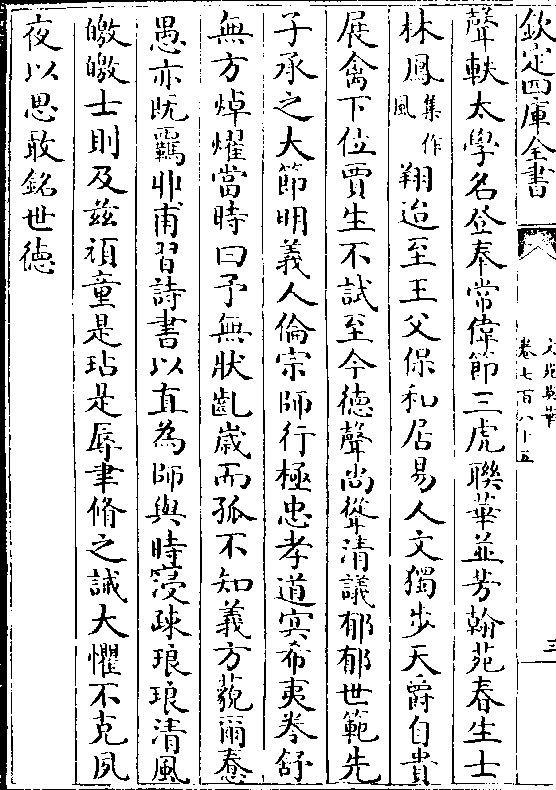 欽定四庫全書
文苑英華
卷七百八十五
三
聲軼太學名登奉常偉節三虎聯華並芳翰苑春生士
林鳳集作風翔迨至王父保和居易人文獨步天爵自貴
展禽下位賈生不試至今德聲尚聳清議郁郁世範先
子承之大節明義人倫宗師行極忠孝道冥希夷卷舒
無方焯燿當時曰予無狀齓歲而孤不知義方藐爾惷
愚亦既羈丱甫習詩書以直為師與時寖疎琅琅清風
皦皦士則及兹頑童是玷是辱聿脩之誡大懼不克夙
夜以思敢銘世德